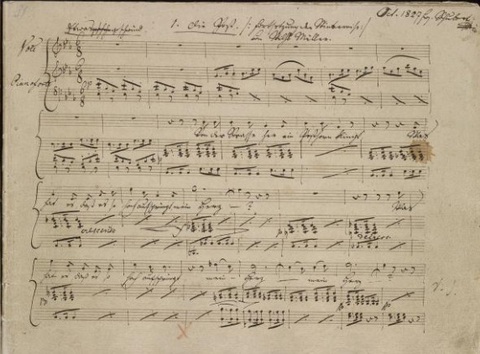 Oct. 1827 Frz Schubert
1. Die Post. Fortsetzung der Winterreise
Wilh. Müller.
Pianoforte
Von der Strasse her ein Posthorn klingt Was
hat es daß es so hochaufspringt mein Herz — ? Was
crescendo
hat es daß es so hoch aufspringt mein — Herz — mein Herz